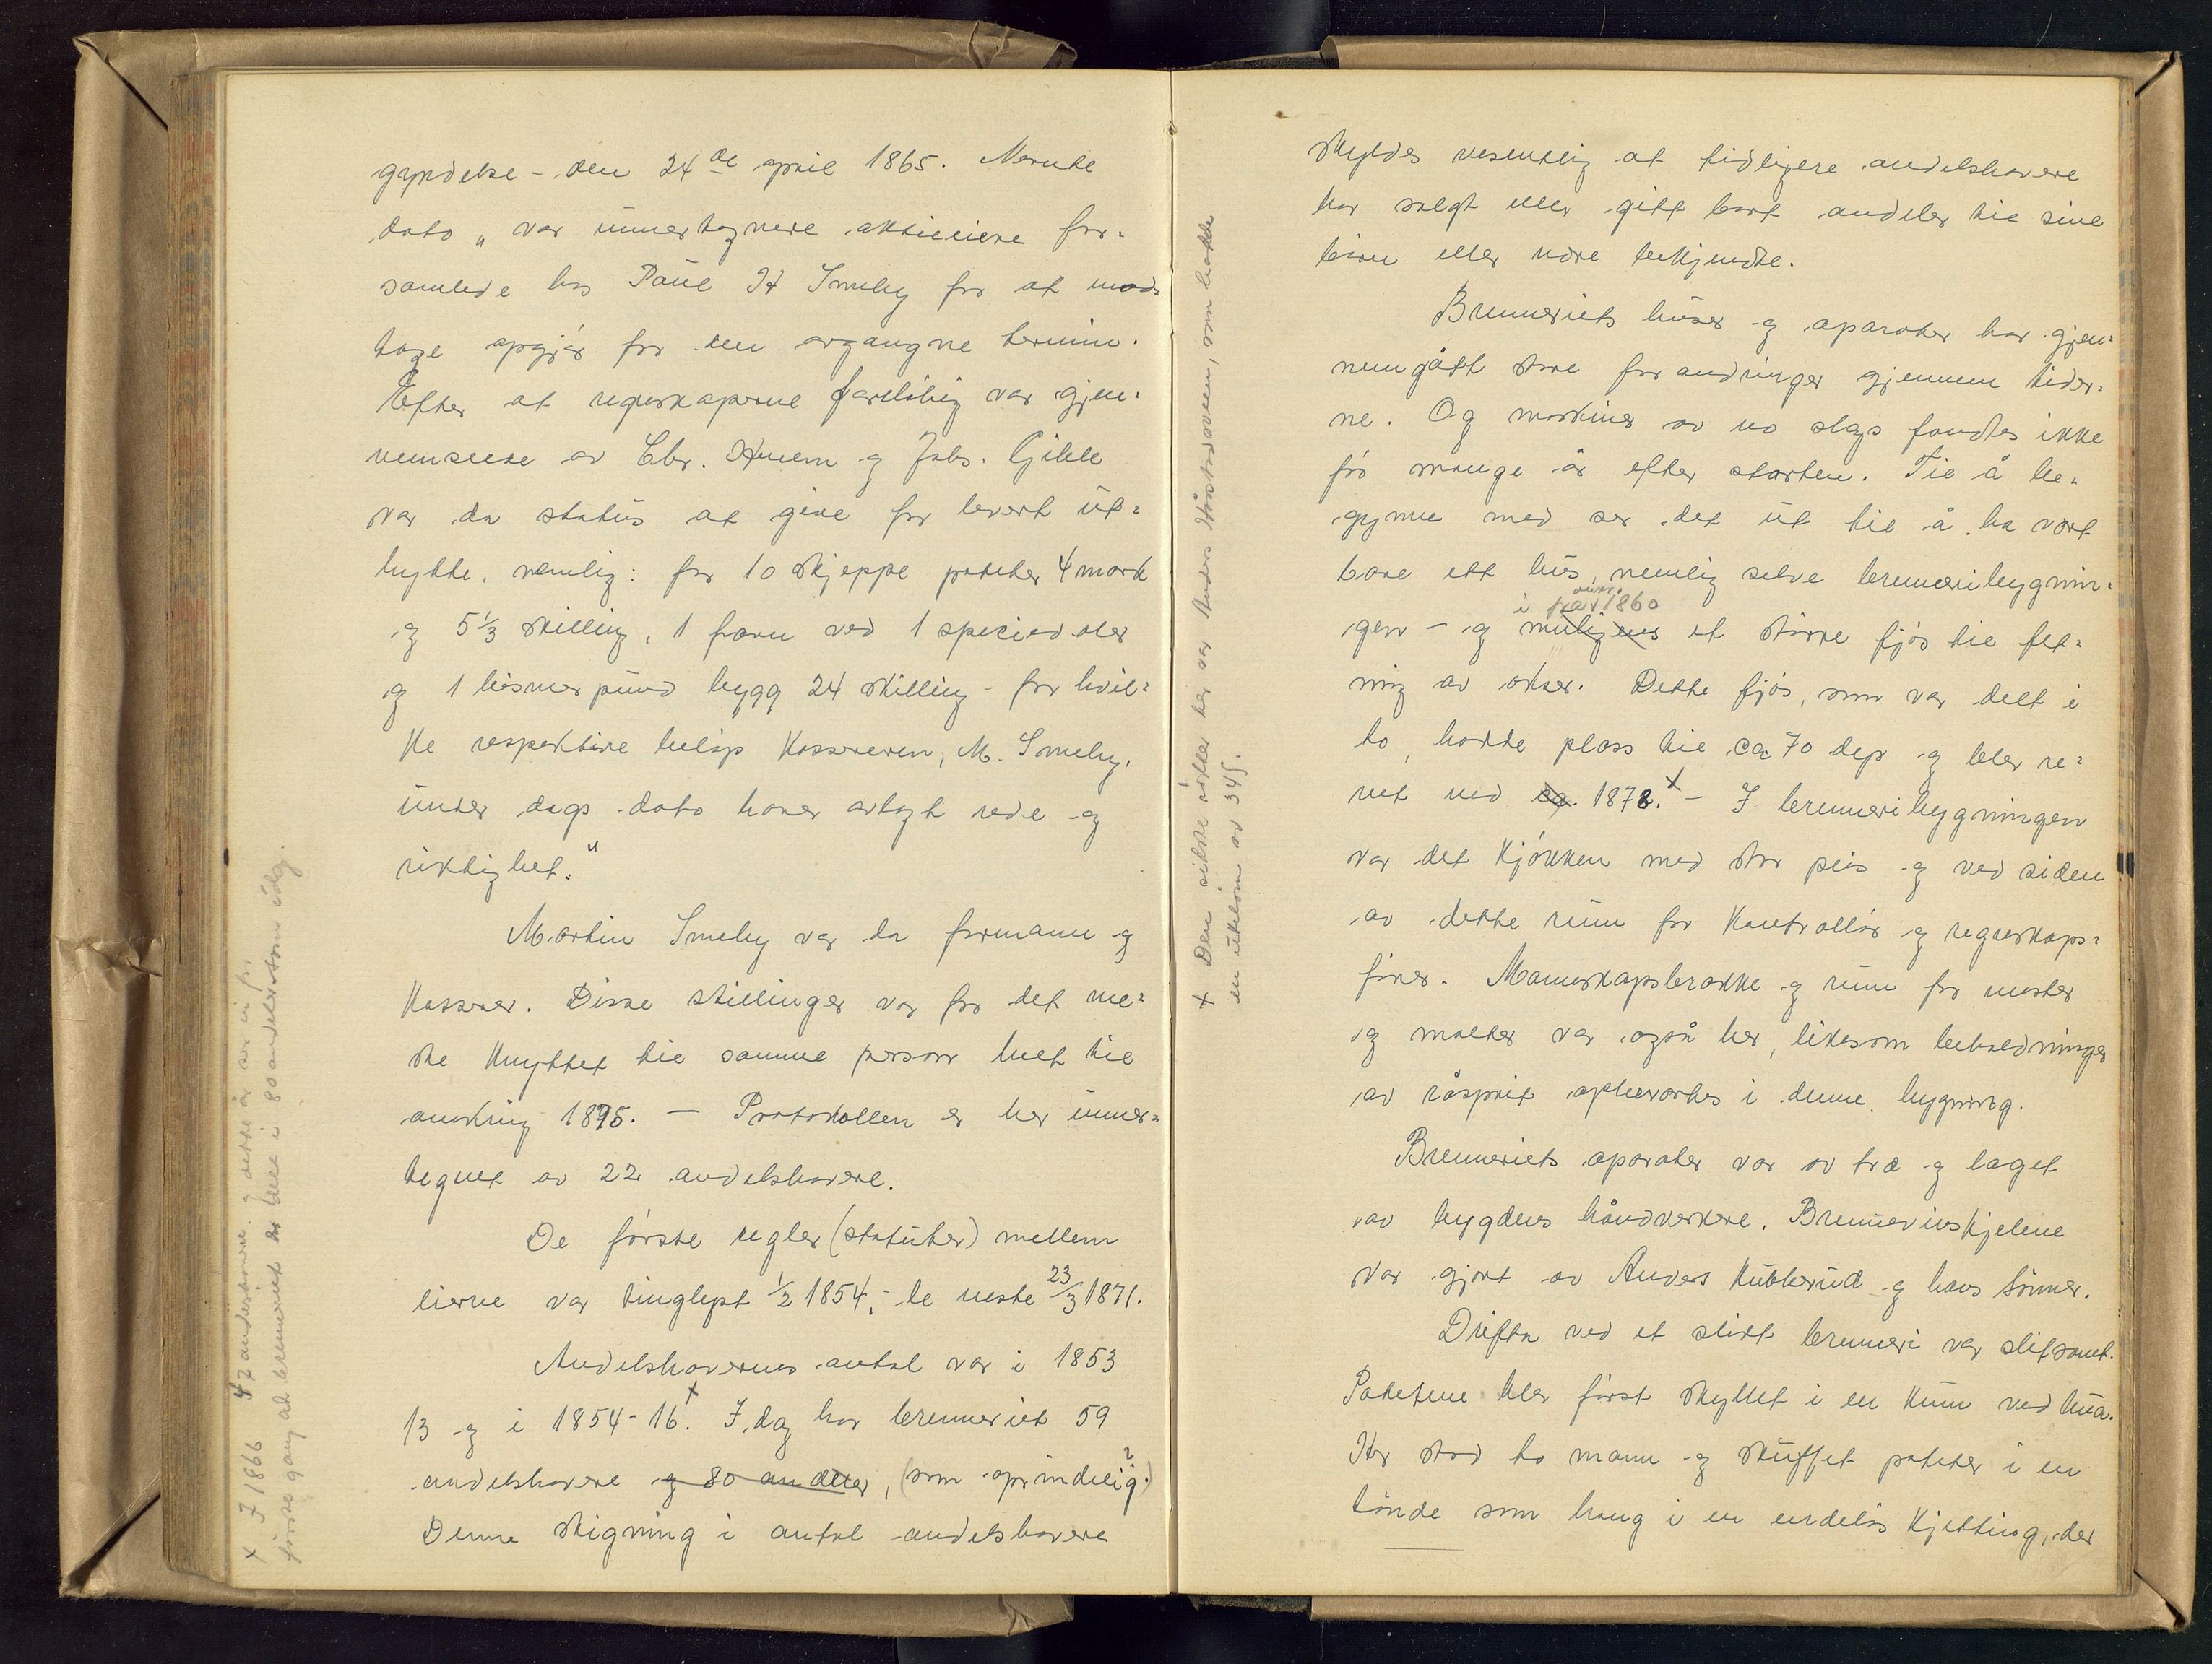 gyndelse - den 24de april 1865. Nevnte
dato „ var unnertegnere aktieeiere for-
samlede hos Paul H Smeby for at mod-
tage opgjør for en avgangne termin.
Efter at regnskaperne foreløbig var gjen-
nemseede av Chr. Huem og Johs. Gihle
var da status at give for levert ut-
bytte, nemlig: for 10 skjeppe poteter 4 mark
og 5⅓ skilling, 1 favn ved 1 speciedaler
og 1 bismerpund bygg 24 skilling - for hvil-
ke respektive beløp kassereren, M. Smeby,
under dags dato haver avlagt rede og
riktighet."
Martin Smeby var da formann og
kasserer. Disse stillinger var for det me-
ste knyttet til samme person helt til
omkring 1895. — Protokollen er her unner-
tegnet av 22 andelshavere.
De første regler (statuter) mellem
eierne var tinglyst 1/2 1854, - de neste 23/3 1871.
Andelshavernes antal var i 1853
13 og i 1854 - 16.x I dag har brenneriet 59
andelshavere og 80 andeler, (som oprindelig?)
Denne stigning i antal andelshavere
x I 1866 42 andelshavere. og dette år ser in for
første gang at brenneriet er delt i 80 andeler som idag.
x Den siste røkter her var Anders Håkstadsveen, som hadde
en utløn av 34 s.
skyldes vesentlig at tidligere andelshavere
har solgt eller gitt bort andeler til sine
barn eller nære bekjendte.
Brenneriets huser og aparater har gjen-
nemgått store forandringer gjennem tider-
ne. Og maskiner av no slags fandtes ikke
på mange år efter starten. Til å be-
gynne med ser det ut til å ha vært
bare ett hus, nemlig selve brenneribygnin-
i fra omkr. 1860
gen - og muligens et større fjøs til fet-
ing av okser. Dette fjøs, som var delt i
to, hadde plass til ca 70 dyr og blev re-
vet ned ca. 1878.x - I brenneribygningen
var det kjøkken med stor peis og ved siden
av dette rum for kontrollør og regnskaps-
fører. Mannskapsbrakke og rum for mester
og malter var også her, likesom beholdninger
av råsprit opbevartes i denne bygning.
Brenneriets aparater var av træ og laget
av bygdens håndverkere. Brennevinskjelene
var gjort av Anders Kubberud og hans sønner.
Drifta ved et slikt brenneri var slitsomt.
Potetene blev først skyllet i en kum ved hua.
Her stod to mann og skuffet poteter i en
tønde som hang i en endeløs kjetting, der